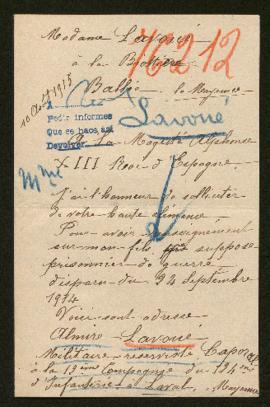 Madame Lavoué
76212
à la
Ballée la Mayenne
10 Août 1915
Pedir informes
Que se haga, así
Devolver
Lavoué
A La Majesté Alphonse
XIII Roi d'Espagne
Mme
J'ai l'honneur de solliciter
de votre haute clémence
Pour avoir renseignement
sur mon fils supposé
prisonnier de guerre
disparu du 24 Septembre
1914
Voici son adresse
Almire Lavoué
Militaire réserviste Caporal
à la 19ème Compagnie du 124 ème
d'Infanterie à Laval Mayenne